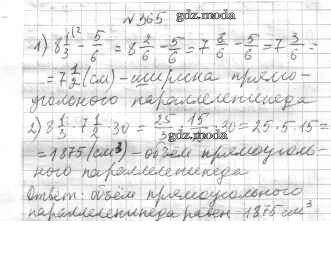 № 965
gdz.moda
1) 8 1/3 - 5/6 = 8 2/6 - 5/6 = 7 8/6 - 5/6 = 7 3/6 =
= 7 1/2 (см) - ширина прямо-
угольного параллелепипеда
2) 8 1/3 · 7 1/2 · 30 = 25/3 · 15/2 · 30 = 25 · 5 · 15 =
gdz.moda
= 1875 (см³) - объём прямоуголь-
ного параллелепипеда
Ответ: объём прямоугольного
параллелепипеда равен 1875 см³